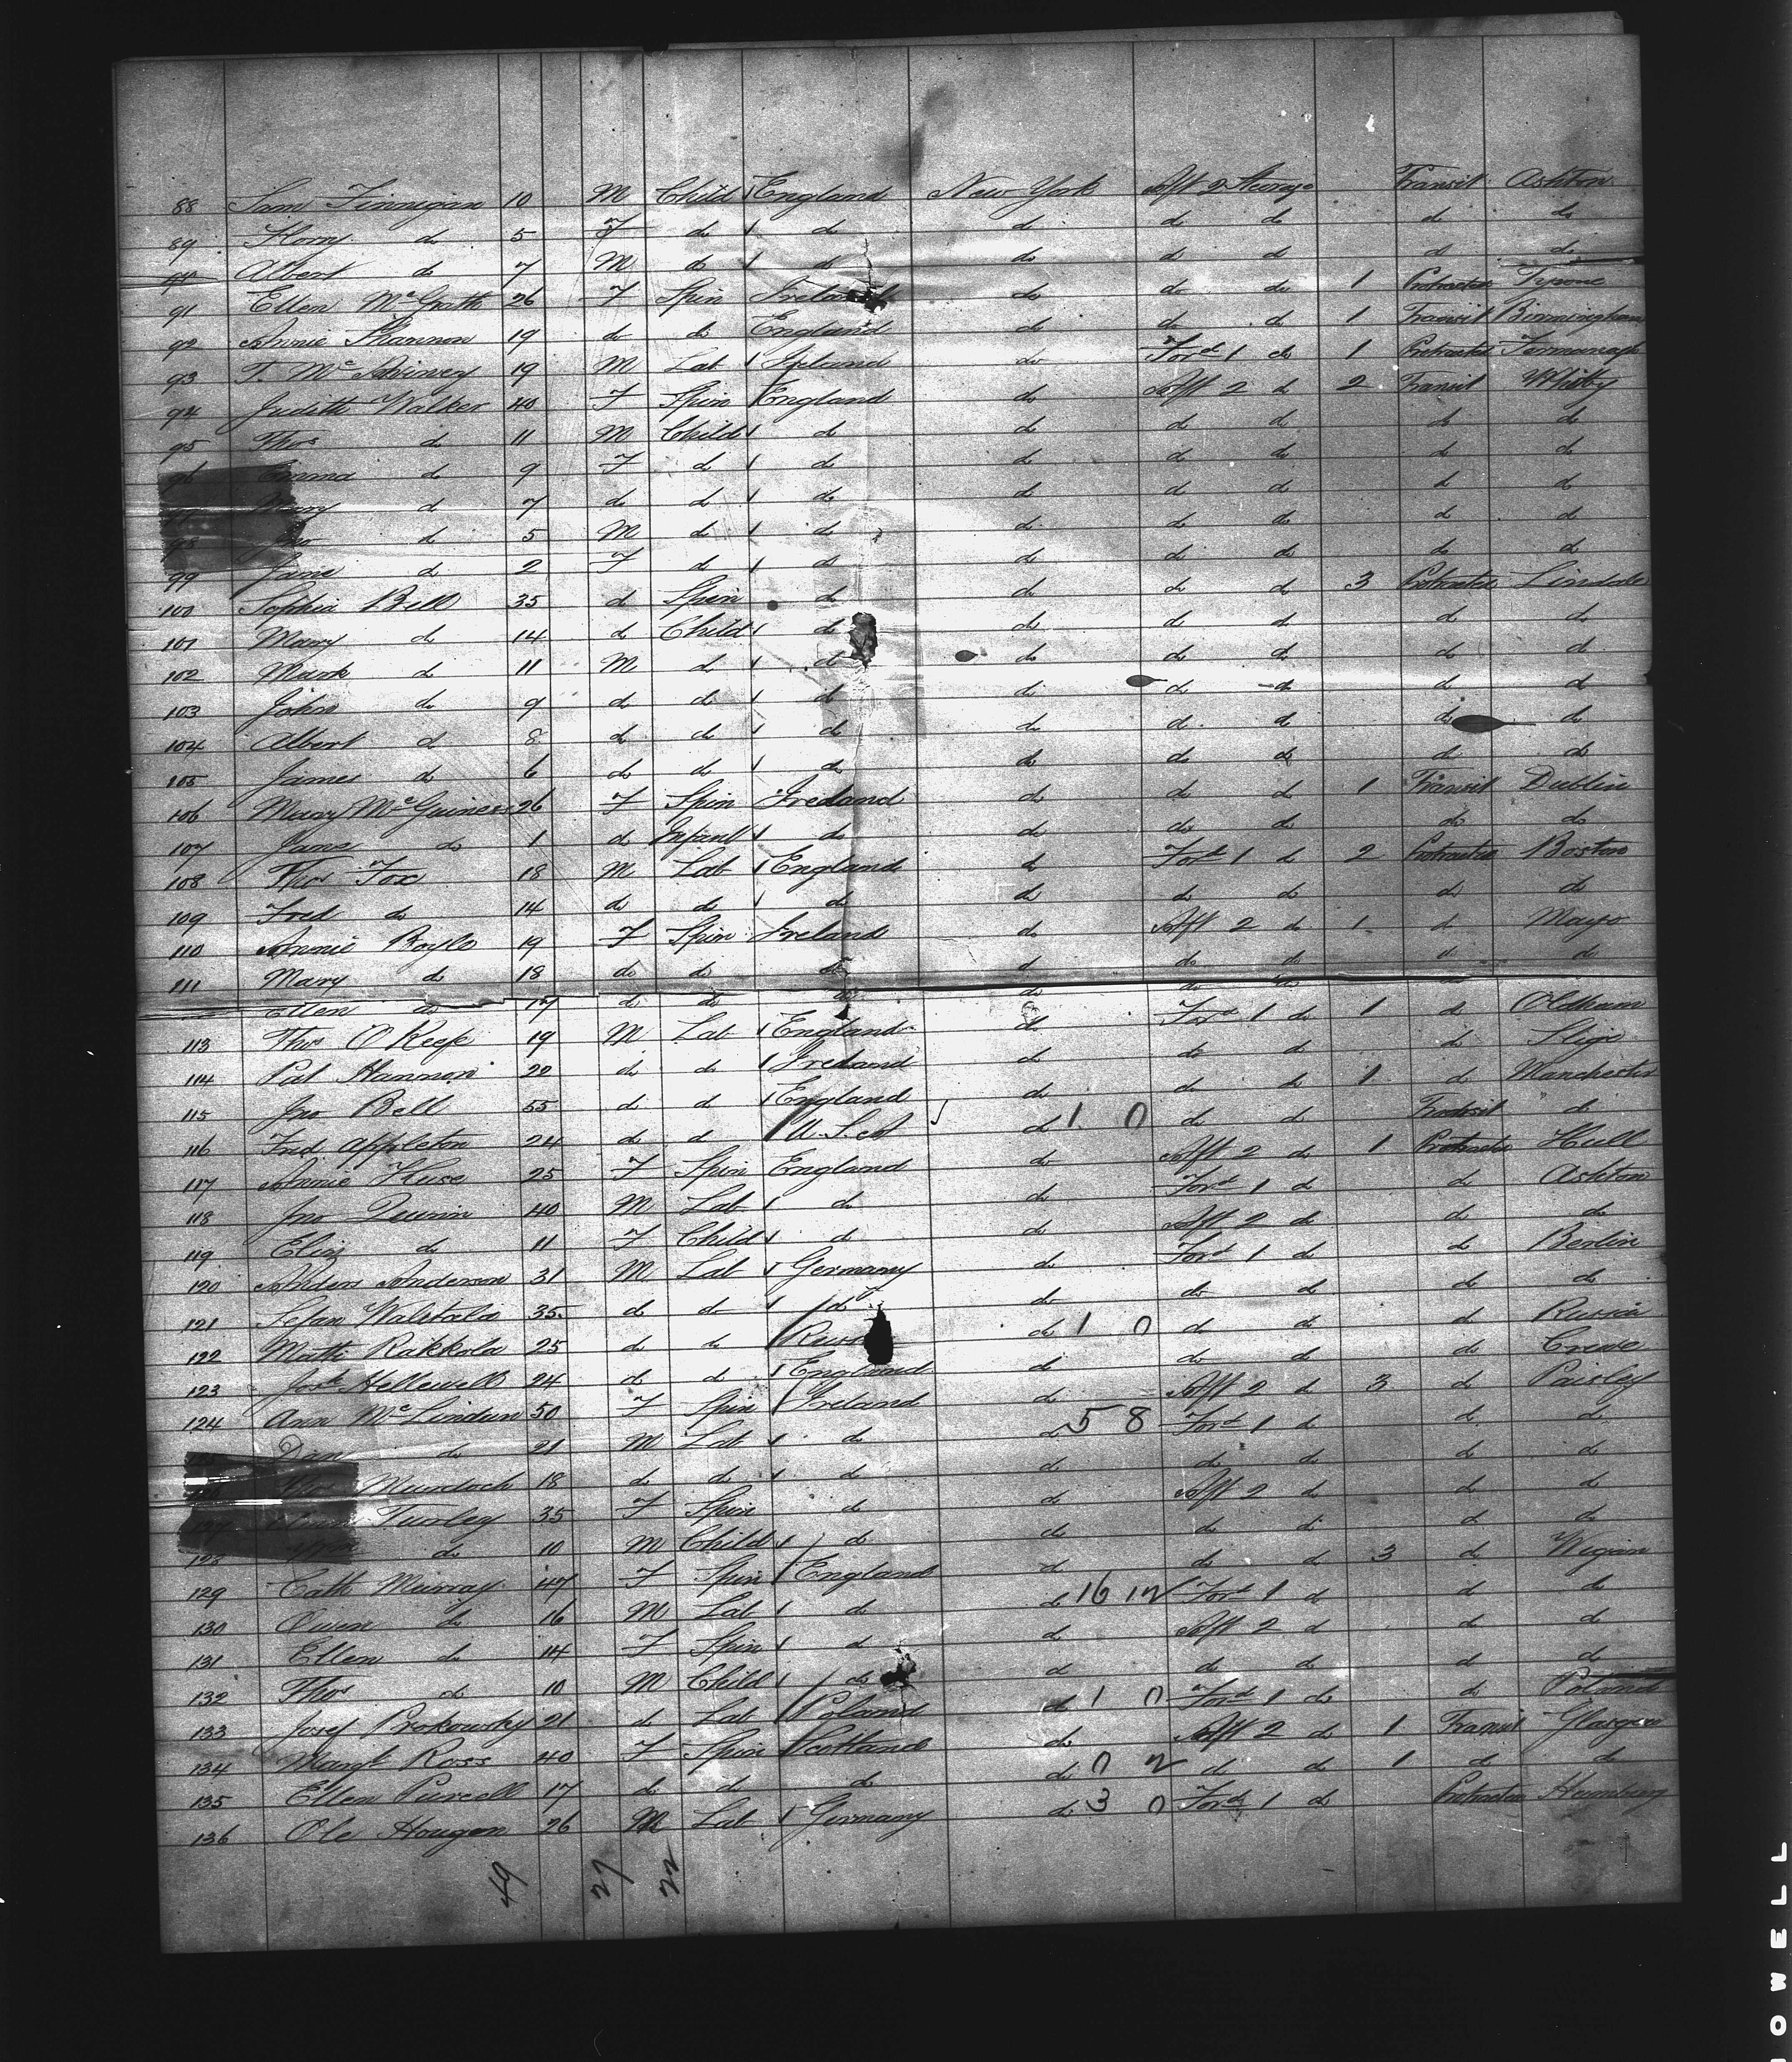 88 Sam Finnegan 10 M Child England New York Aft 2 Steerage Transit Ashton
89 Florry do 5 F do do do do do do do
Albert do 7 M do do do do do do do
91 Ellen McGrath 26 F Spin Ireland do do do 1 Protracted Tyrone
92 Annie Shannon 19 do do England do do do 1 Transit Birmingham
93 T. Mc 19 M Lab Ireland do Ford 1 do 1 Protracted Fermanagh
94 Judith Walker 40 F Spin England do Aft 2 do 2 Transit Whitby
95 Thos do 11 M Child do do do do do do
96 Emma do 9 F do do do do do do do
Mary do 7 do do do do do do do do
98 Jno do 5 M do do do do do do do
99 Jane do 2 F do do do do do do do
100 Sophia Bell 35 do Spin do do do do 3 Protracted Lindale
101 Mary do 14 do Child do do do do do do
102 Mark do 11 M do do do do do do do
103 John do 9 do do do do do do do do
104 Albert do 8 do do do do do do do do
105 James do 6 do do do do do do do do
106 Mary McGuiness 26 F Spin Ireland do do do 1 Transit Dublin
107 Jane do 1 do Infant do do do do do do
108 Thos Fox 18 M Lab England do Ford 1 do 2 Protracted Boston
109 Fred do 14 do do do do do do do do
110 Annie Boyle 19 F Spin Ireland do Aft 2 do 1 do Mayo
111 Mary do 18 do do do do do do do do
Ellen do 17 do do do do do do
113 Thos O Keefe 19 M Lab England do Ford 1 do 1 do Oldham
114 Pat Hannon 20 do do Ireland do do do do Sligo
115 Jno Bell 55 do do England do do do 1 do Manchester
116 Fred Appleton 24 do do U.S.A do 1 0 do do Transit do
117 Annie Huse 25 F Spin England do Aft 2 do 1 Protracted Hull
118 Jno Quinn 40 M Lab do do Ford 1 do do Ashton
119 Eliz do 11 F Child do do Aft 2 do do do
120 Anders Anderson 31 M Lab Germany do Ford 1 do do Berlin
121 Sefan Walstala 35 do do do do do do do do
122 Math Rakkola 25 do do Russ do 1 0 do do do Russia
123 Josh Hellewell 24 do do England do do do do Crewe
124 Ann McLindun 50 F Spin Ireland do Aft 2 do 3 do Paisley
Dan do 21 M Lab do do 5 8 Ford 1 do do do
Murdoch 18 do do do do do do do do
127 Turley 35 F Spin do do Aft 2 do do do
128 Wm do 10 M Child do do do do do do
129 Cath Murray 47 F Spin England do do do 3 do Wigan
130 Owen do 16 M Lab do do 16 12 Ford 1 do do do
131 Ellen do 14 F Spin do do Aft 2 do do do
132 Thos do 10 M Child do do do do do do
133 Josef Prokowsky 21 do Lab Poland do 1 0 Ford 1 do do Poland
134 Margt Ross 40 F Spin Scotland do Aft 2 do 1 Transit Glasgow
135 Ellen Purcell 17 do do do do 0 2 do do 1 do do
136 Ole Hougen 26 M Lab Germany do 3 0 Ford 1 do Protracted Hamburg
49 27 22
OWELL